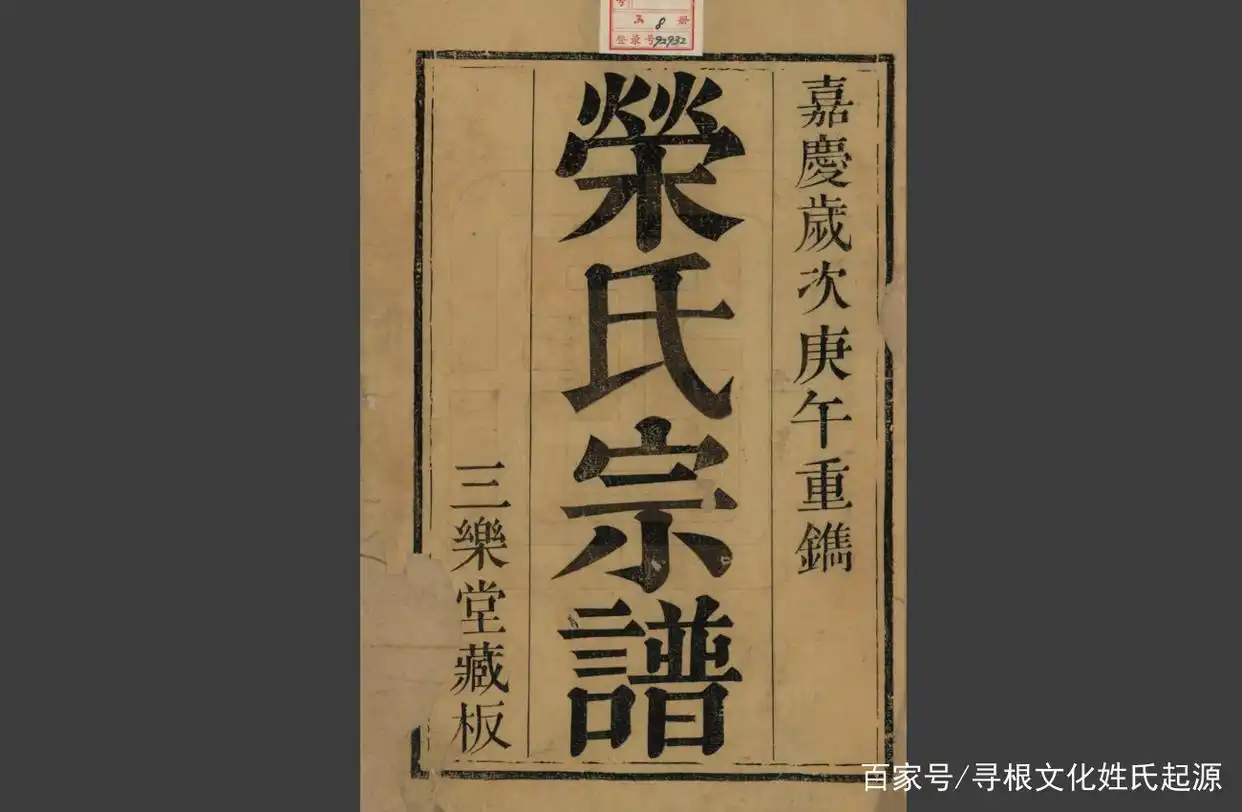 嘉慶歲次庚午重鐫
榮氏宗譜
三樂堂藏板
号
共 8 册
登录号92932
百家号/寻根文化姓氏起源